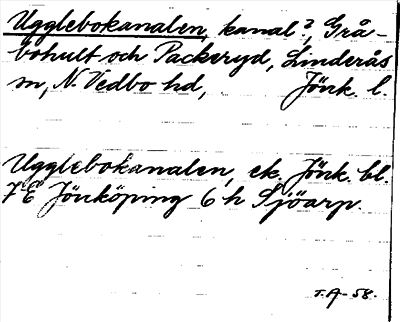 Ugglebokanalen, kanal?, Grå-
bohult och Packeryd, Linderås
sn, N. Vedbo hd, Jönk. l.
Ugglebokanalen, ek. Jönk. bl.
7 E Jönköping 6 h Sjöarp.
T.A-58.